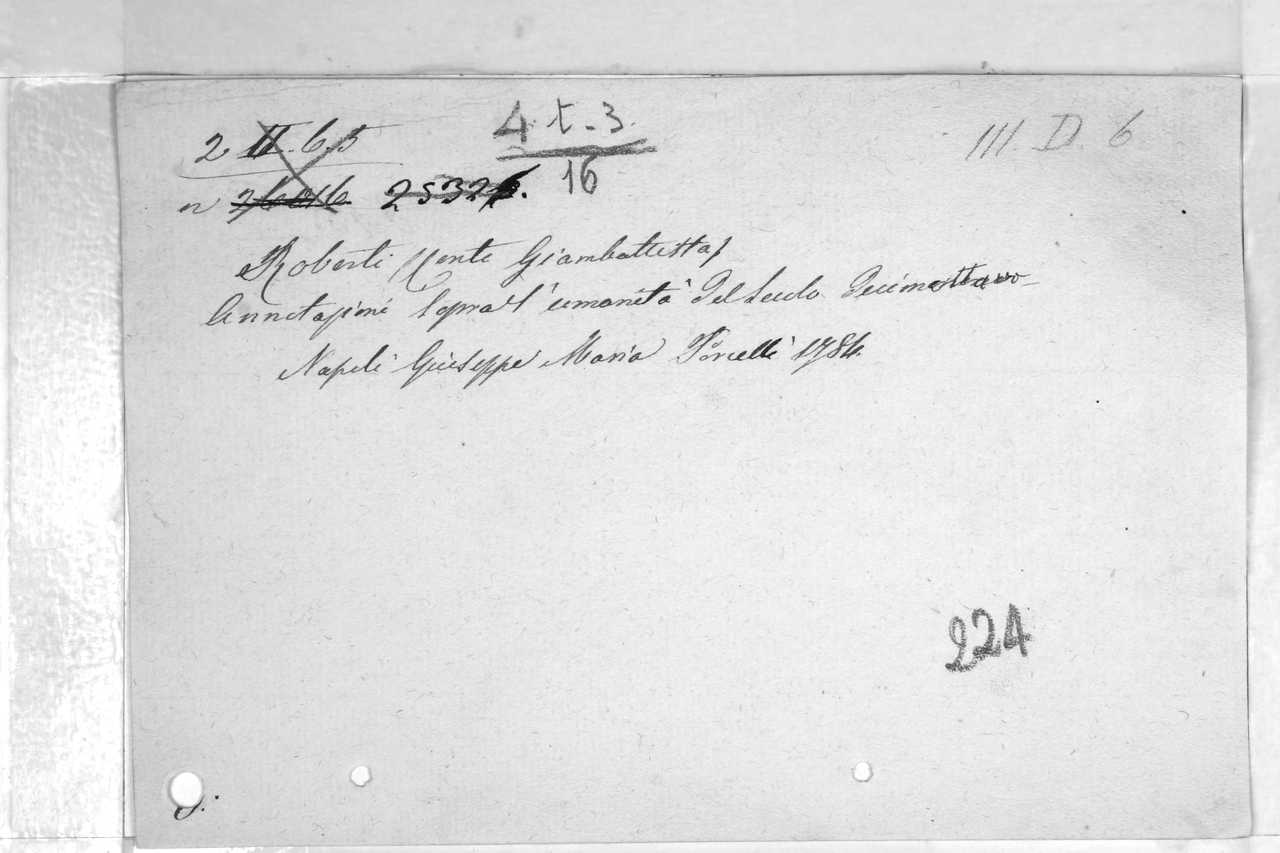 2 II. 6. 5
4 t - 3.
16
III. D. 6
n 26016 2532
Roberti (Conte Giambattista)
Annotazioni sopra l'umanità del Secolo Decimottavo
Napoli Giuseppe Maria Porcelli 1784.
224